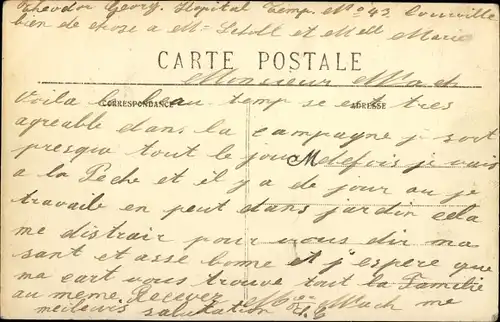 Theodor Georg. Hopital Temp. No 43 Courville
bien de chose a Mr Scholl et Mell Marie
CARTE POSTALE
Monsieur Mach
CORRESPONDANCE
ADRESSE
Voila le beau temp se est tres
agreable dans la campagne j sort
presque tout le jour Mdefois je vais
a la Peche et il j a de jour au je
travaile en peut dans jardin cela
me distrair pour vous dir ma
sant et asse bome et j'espere que
ma cart vous trouve tout la Familie
au meme Recever Mach me
meileurs salutation